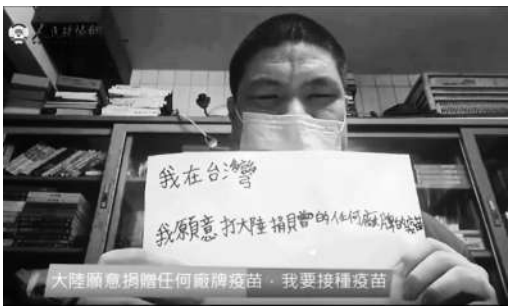 我在台灣
我願意打大陸捐贈的任何廠牌的疫苗
大陸願意捐贈任何廠牌疫苗，我要接種疫苗